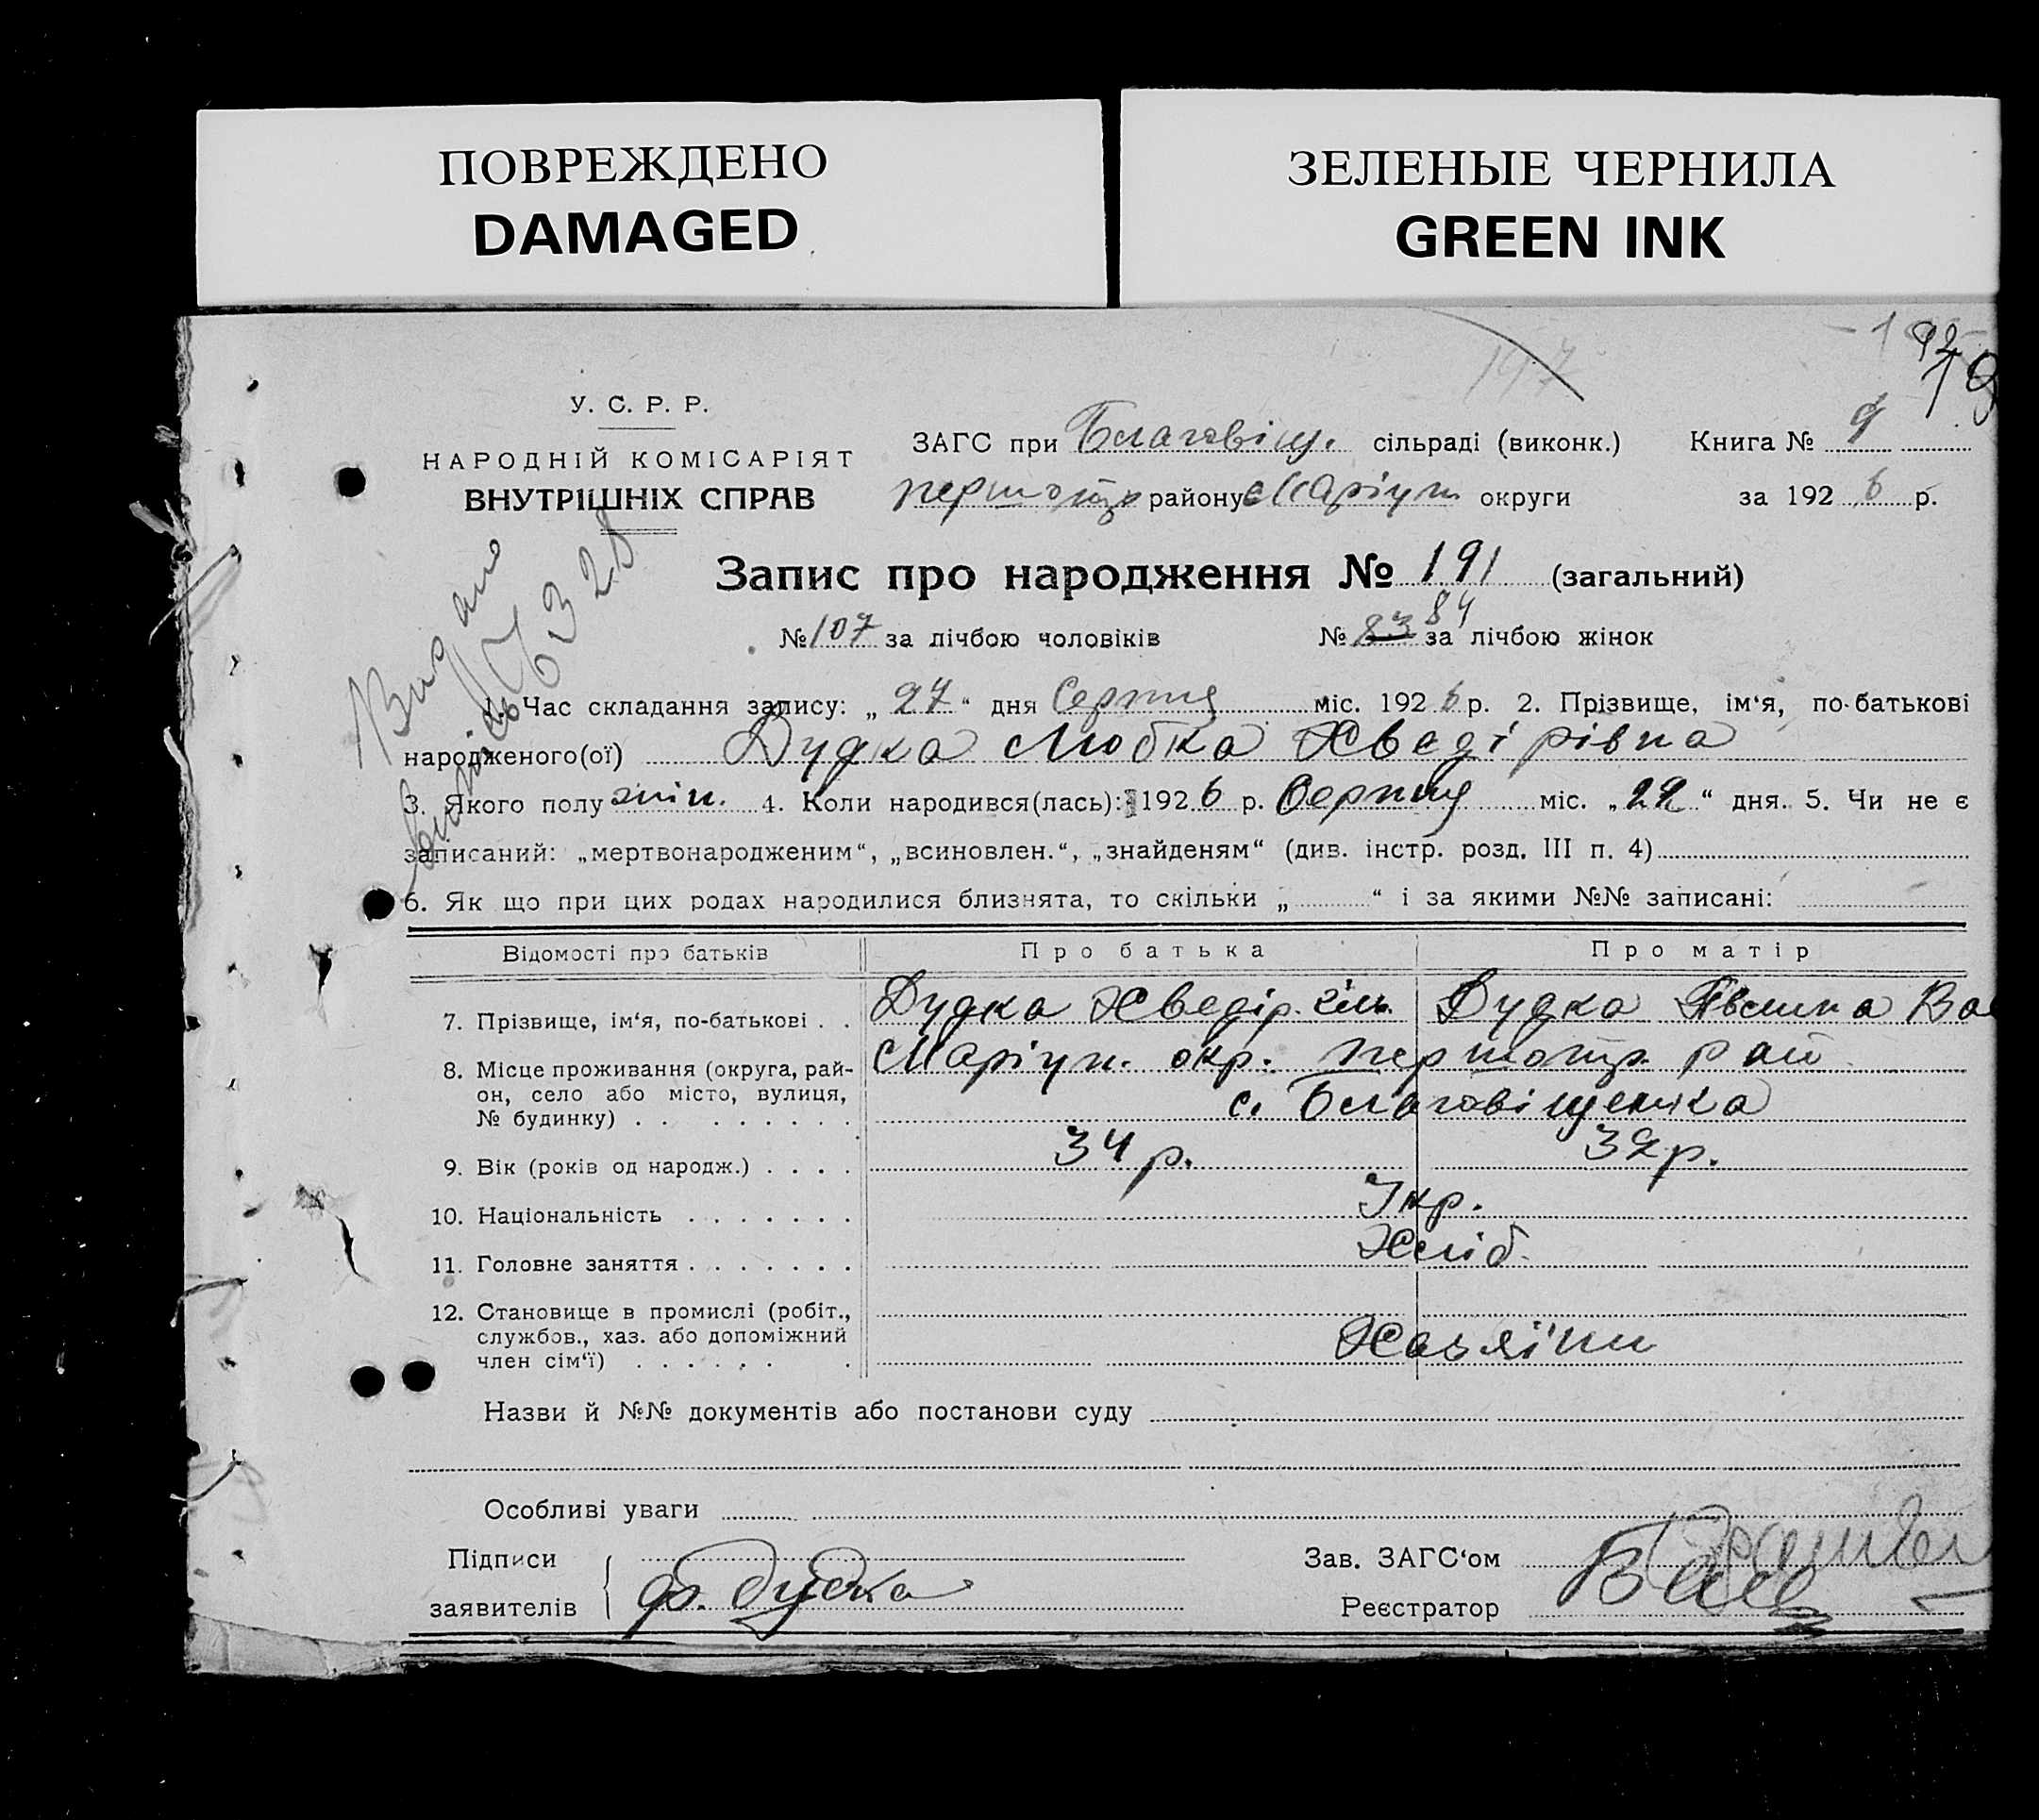 ПОВРЕЖДЕНО
DAMAGED
ЗЕЛЕНЫЕ ЧЕРНИЛА
GREEN INK
197
У. С. Р. Р.
НАРОДНІЙ КОМІСАРІЯТ
ВНУТРІШНІХ СПРАВ
ЗАГС при Благовіщ. сільраді (виконк.) Книга №
першотр району Маріуп. округи за 1926 р.
Запис про народження № 191 (загальний)
№ 107 за лічбою чоловіків № 83 84 за лічбою жінок
Видано
1. Час складання запису: „27“ дня Серпня міс. 1926 р. 2. Прізвище, ім‘я, по-батькові
народженого(ої) Дудка Любка Хведірівна
3. Якого полу жін. 4. Коли народився(лась): 1926 р. Серпня міс. „22“ дня. 5. Чи не є
записаний: „мертвонародженим“, „всиновлен.“, „знайденям“ (див. інстр. розд. III п. 4)
6. Як що при цих родах народилися близнята, то скільки „ “ і за якими №№ записані:
Відомості про батьків Про батька Про матір
7. Прізвище, ім‘я, по-батькові . . Дудка Хведір. Дудка Ва
8. Місце проживання (округа, рай- Маріуп. окр. першотр. рай
он, село або місто, вулиця, с. Благовіщенка
№ будинку) . . . . . . . .
9. Вік (років од народж.) . . . . 34 р. 32 р.
10. Національність . . . . . . . Укр.
11. Головне заняття . . . . . . . Хліб.
12. Становище в промислі (робіт.,
службов., хаз. або допоміжний Хазяїни
член сім‘ї) . . . . . . .
Назви й №№ документів або постанови суду
Особливі уваги
Підписи Зав. ЗАГС‘ом
заявителів Ф. Дудка Реєстратор